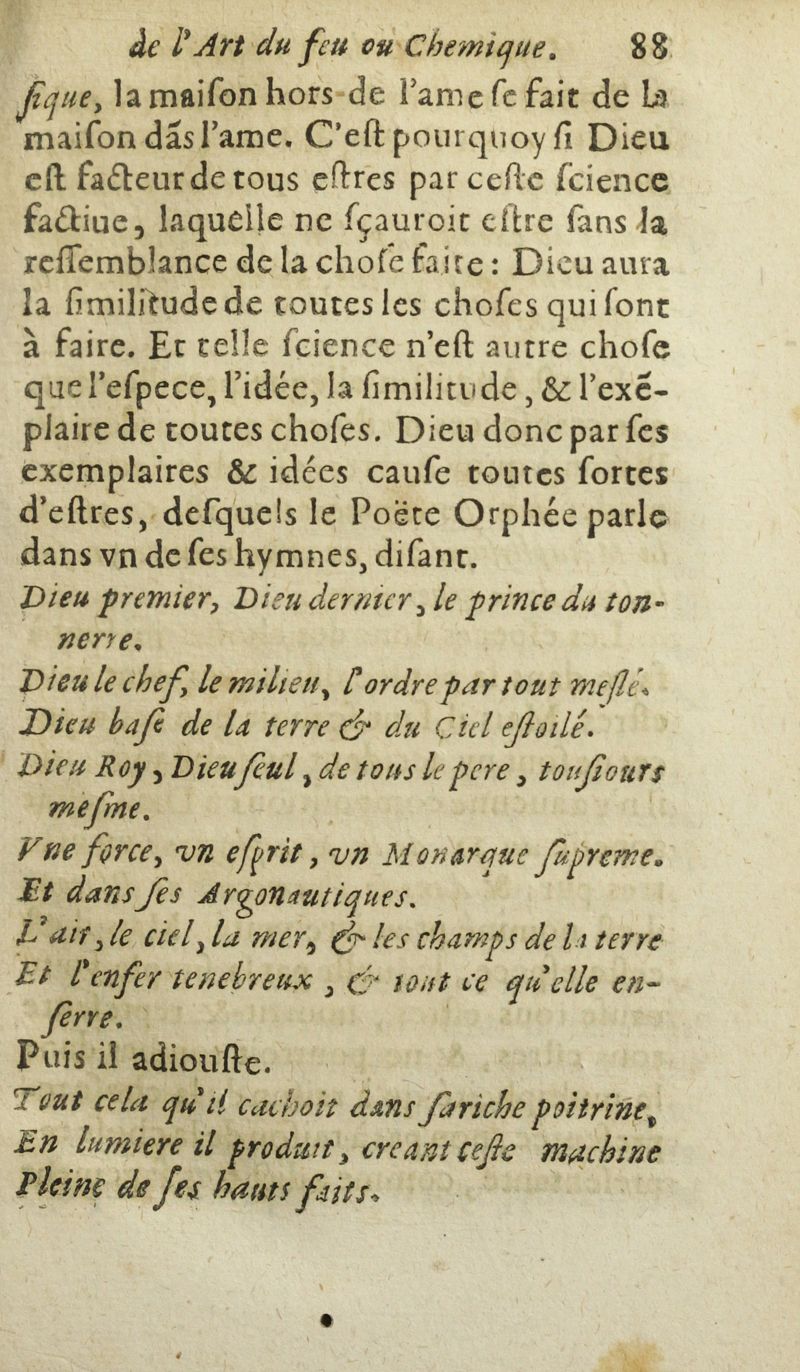 de l'Art du feu ou Chemique. 88
ſique, la maiſon hors de l'ame ſe fait de la
maiſon dãs l'ame. C'eſt pourquoy ſi Dieu
eſt facteur de tous eſtres par ceſte ſcience
factiue, laquelle ne ſçauroit eſtre ſans la
reſſemblance de la choſe faite : Dieu aura
la ſimilitude de toutes les choſes qui ſont
à faire. Et telle ſcience n'eſt autre choſe
que l'eſpece, l'idée, la ſimilitude, & l'exẽ-
plaire de toutes choſes. Dieu donc par ſes
exemplaires & idées cauſe toutes ſortes
d'eſtres, deſquels le Poëte Orphée parle
dans vn de ſes hymnes, diſant.
Dieu premier, Dieu dernier, le prince du ton-
nerre.
Dieu le chef, le milieu, l'ordre par tout meſlé.
Dieu baſe de la terre & du Ciel eſtoilé.
Dieu Roy, Dieu ſeul, de tous le pere, touſiours
meſme.
Vne force, vn eſprit, vn Monarque ſupreme.
Et dans ſes Argonautiques.
L'air, le ciel, la mer, & les champs de la terre
Et l'enfer tenebreux, & tout ce qu'elle en-
ferre.
Puis il adiouſte.
Tout cela qu'il cachoit dans ſa riche poitrine,
En lumiere il produit, creant ceſte machine
Pleine de ſes hauts faits.